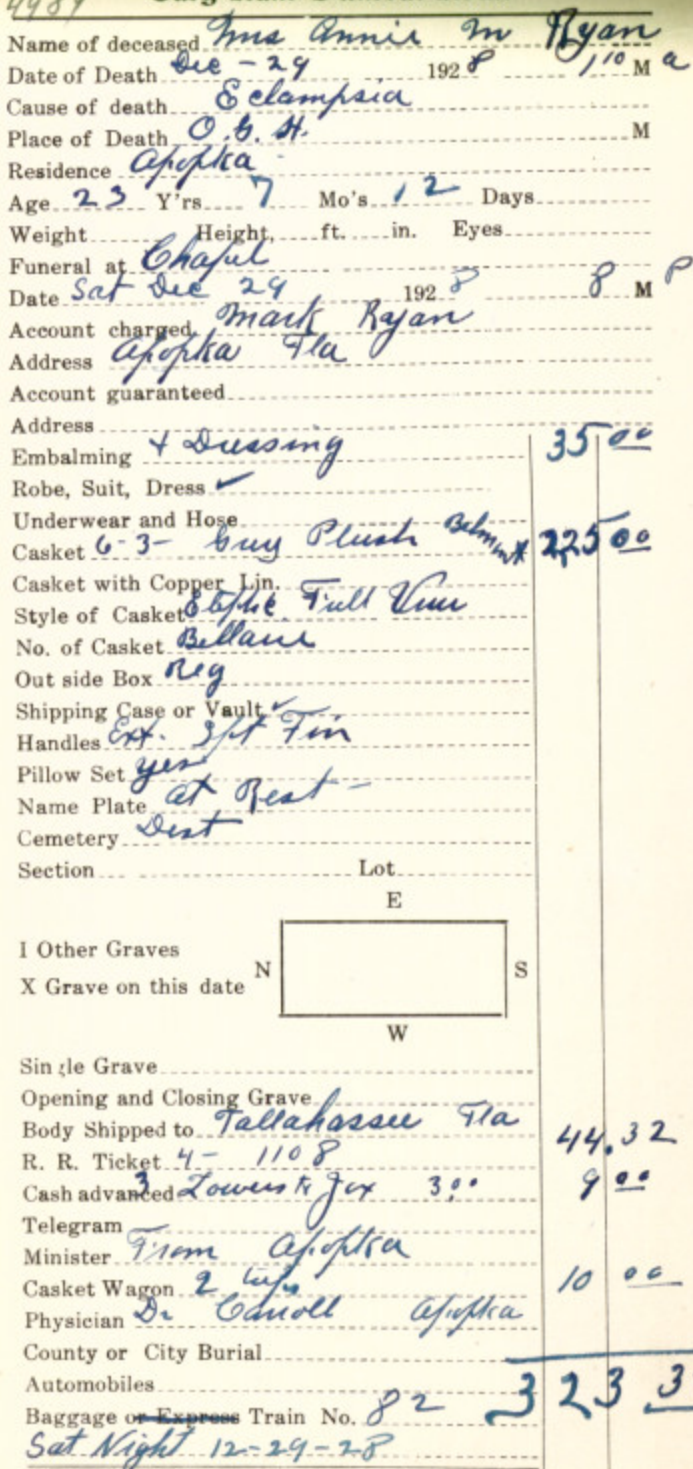 4989
Name of deceased Mrs Annie M Ryan
Date of Death Dec - 29 1928 1 10 M a
Cause of death Eclampsia
Place of Death O. G. H. M
Residence Apopka
Age 23 Y'rs 7 Mo's 12 Days
Weight Height, ft. in. Eyes
Funeral at Chapel
Date Sat Dec 29 1928 8 M P
Account charged Mark Ryan
Address Apopka Fla
Account guaranteed
Address
Embalming + Dressing 35 00
Robe, Suit, Dress ✓
Underwear and Hose
Casket 6-3- Grey Plush 225 00
Casket with Copper Lin.
Style of Casket Full View
No. of Casket
Out side Box Reg
Shipping Case or Vault ✓
Handles Ext. Fin
Pillow Set yes
Name Plate At Rest -
Cemetery
Section Lot
E
1 Other Graves
N S
X Grave on this date
W
Single Grave
Opening and Closing Grave
Body Shipped to Tallahassee Fla
R. R. Ticket 4- 1108 44.32
Cash advanced 3 Jax 3 00 9 00
Telegram
Minister From Apopka
Casket Wagon 2 trips 10 00
Physician Dr Carroll Apopka
County or City Burial
Automobiles
Baggage or Express Train No. 82 323 3
Sat Night 12-29-28